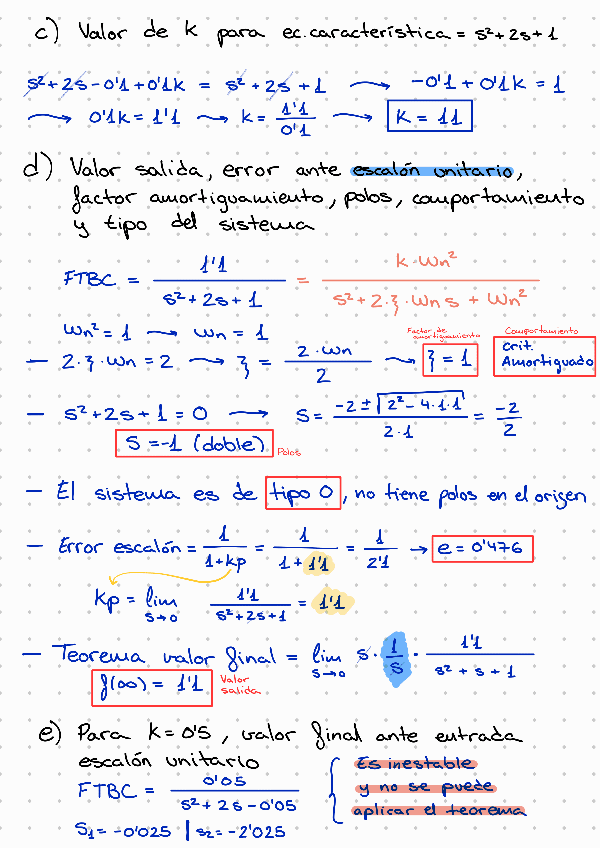 c) Valor de k para ec.característica = s²+2s+1
s²+2s-0'1+0'1k = s²+2s+1 → -0'1+0'1k = 1
→ 0'1k = 1'1 → k = 1'1/0'1 → k = 11
d) Valor salida, error ante escalón unitario,
factor amortiguamiento, polos, comportamiento
y tipo del sistema
FTBC = 1'1/(s²+2s+1) = k·Wn²/(s²+2·ξ·Wn s + Wn²)
Wn² = 1 → Wn = 1
Factor de amortiguamiento
Comportamiento
— 2·ξ·Wn = 2 → ξ = 2·Wn/2 → ξ = 1
crit.
Amortiguado
— s²+2s+1 = 0 → s = (-2±√(2²-4·1·1))/(2·1) = -2/2
S = -1 (doble) Polos
— El sistema es de tipo 0, no tiene polos en el origen
— Error escalón = 1/(1+kp) = 1/(1+1'1) = 1/2'1 → e = 0'476
kp = lím s→0 1'1/(s²+2s+1) = 1'1
— Teorema valor final = lím s→0 s·1/s·1'1/(s²+s+1)
f(∞) = 1'1 Valor salida
e) Para k = 0'5, valor final ante entrada
escalón unitario
FTBC = 0'05/(s²+2s-0'05)
S₁ = -0'025 | s₂ = -2'025
Es inestable
y no se puede
aplicar el teorema